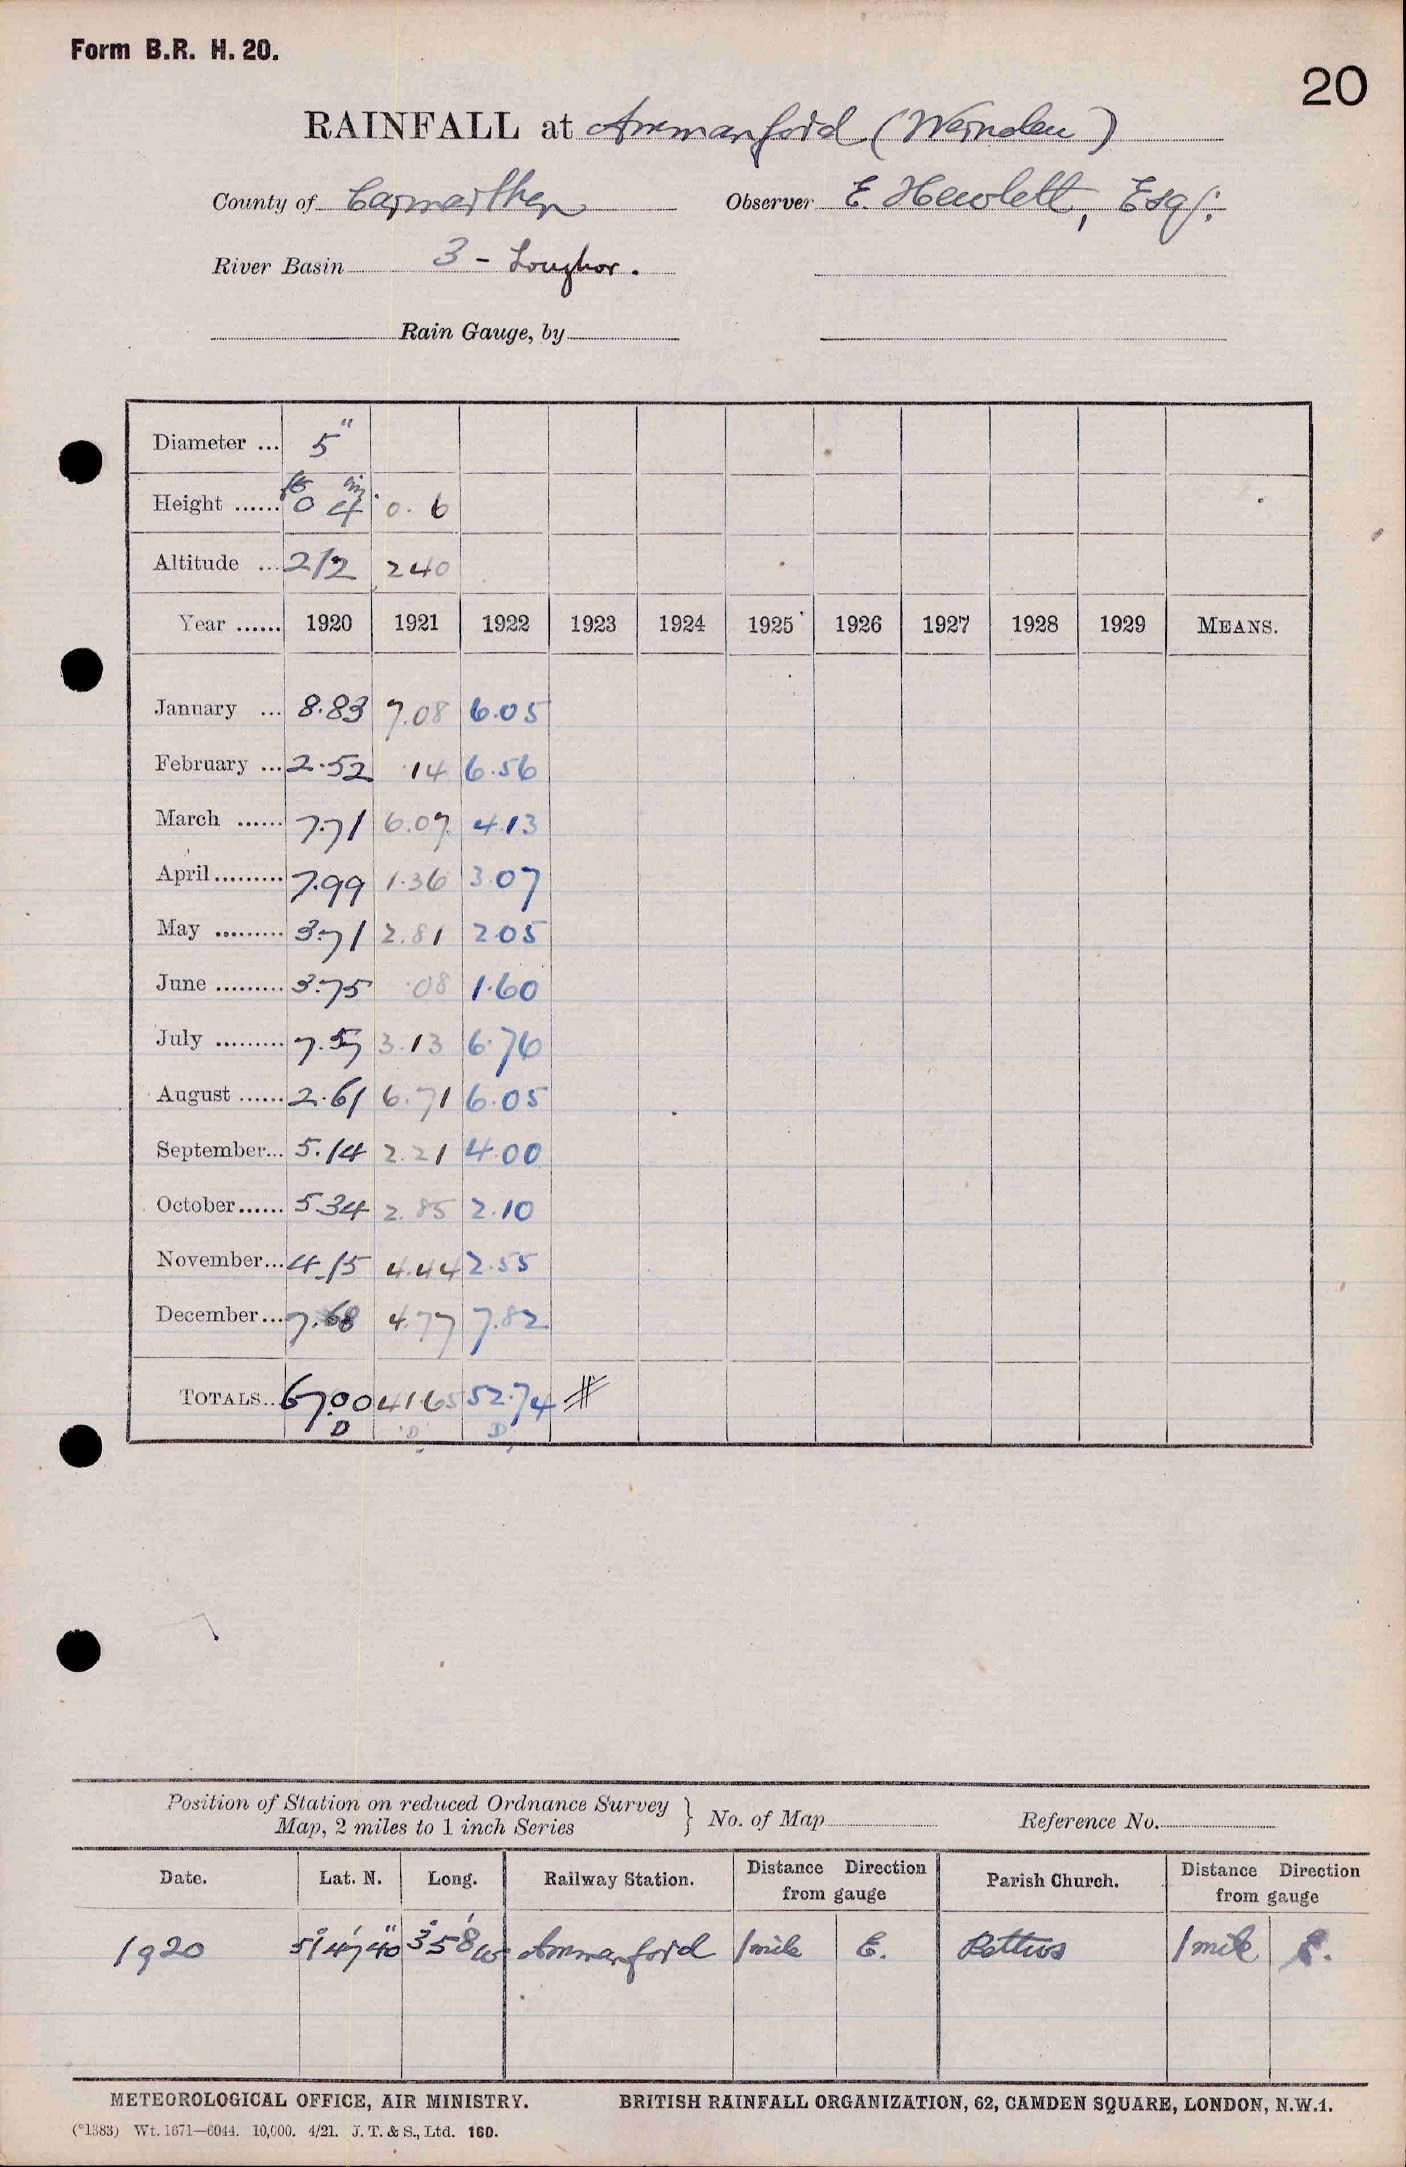 Form B.R. H. 20.
20
RAINFALL at Ammanford (Werndew)
County of Carmarthen Observer E. Hewlett, Esq.
River Basin 3 - Loughor.
Rain Gauge, by
Diameter ... 5"
Height ...... ft in 0 4 0. 6
Altitude ... 212 240
Year ...... 1920 1921 1922 1923 1924 1925 1926 1927 1928 1929 MEANS.
January ... 8.83 7.08 6.05
February ... 2.52 .14 6.56
March ...... 7.71 6.07 4.13
April ......... 7.99 1.36 3.07
May ......... 3.71 2.81 2.05
June ......... 3.75 .08 1.60
July ......... 7.57 3.13 6.76
August ...... 2.61 6.71 6.05
September... 5.14 2.21 4.00
October...... 5.34 2.85 2.10
November... 4.15 4.44 2.55
December... 7.68 4.77 7.82
TOTALS.. 67.00 41.65 52.74 #
D D D
Position of Station on reduced Ordnance Survey
Map, 2 miles to 1 inch Series } No. of Map Reference No.
Date. Lat. N. Long. Railway Station. Distance Direction from gauge Parish Church. Distance Direction from gauge
1920 51° 47' 40" 3° 58' Ammanford 1 mile E. Bettws 1 mile
METEOROLOGICAL OFFICE, AIR MINISTRY. BRITISH RAINFALL ORGANIZATION, 62, CAMDEN SQUARE, LONDON, N.W.1.
(*1383) Wt. 1671—6044. 10,000. 4/21. J. T. & S., Ltd. 160.